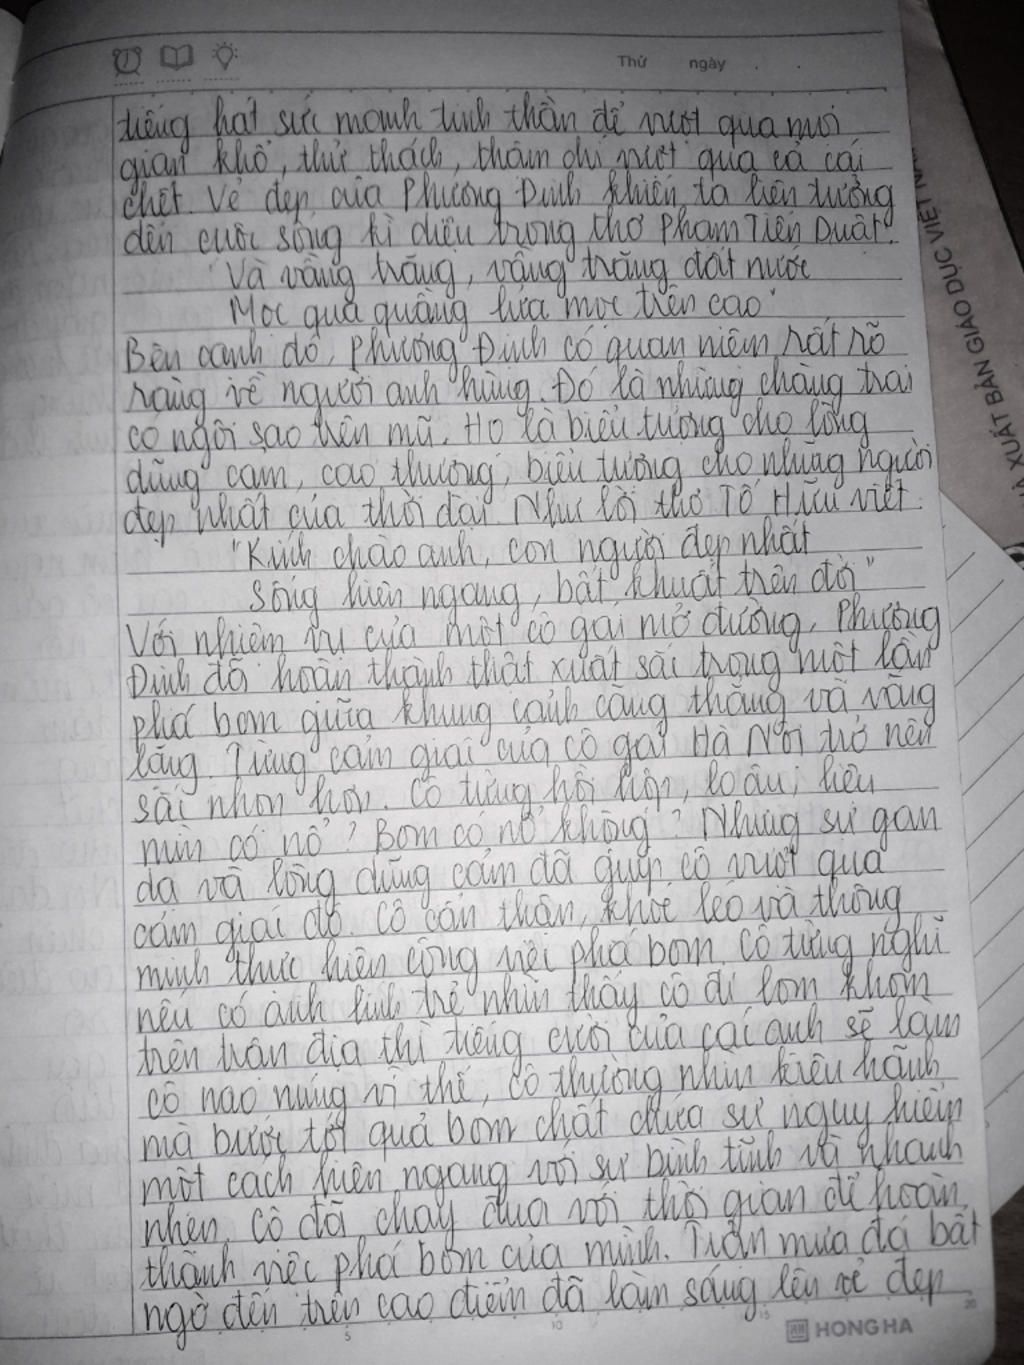 Thứ ngày
tiếng hát sức mạnh tinh thần để vượt qua mọi
gian khổ, thử thách, thậm chí vượt qua cả cái
chết. Vẻ đẹp của Phương Định khiến ta liên tưởng
đến cuộc sống kì diệu trong thơ Phạm Tiến Duật.
"Và vầng trăng, vầng trăng đất nước
Mọc qua quầng lửa mọc trên cao"
Bên cạnh đó, Phương Định có quan niệm rất rõ
ràng về người anh hùng. Đó là những chàng trai
có ngôi sao trên mũ. Họ là biểu tượng cho lòng
dũng cảm, cao thượng, biểu tượng cho những người
đẹp nhất của thời đại. Như lời thơ Tố Hữu viết:
"Kính chào anh, con người đẹp nhất
Sống hiên ngang, bất khuất trên đời"
Với nhiệm vụ của một cô gái mở đường, Phương
Định đã hoàn thành thật xuất sắc trong một lần
phá bom giữa khung cảnh căng thẳng và vắng
lặng. Từng cảm giác của cô gái Hà Nội trở nên
sắc nhọn hơn. Cô từng hồi hộp, lo âu, liệu
mìn có nổ? Bom có nổ không? Nhưng sự gan
dạ và lòng dũng cảm đã giúp cô vượt qua
cảm giác đó. Cô cẩn thận, khéo léo và thông
minh thực hiện công việc phá bom. Cô từng nghĩ
nếu có anh lính trẻ nhìn thấy cô đi lom khom
trên trận địa thì tiếng cười của các anh sẽ làm
cô nao núng vì thế, cô thường nhìn kiêu hãnh
mà bước tới quả bom chất chứa sự nguy hiểm
một cách hiên ngang với sự bình tĩnh và nhanh
nhẹn. Cô đã chạy đua với thời gian để hoàn
thành việc phá bom của mình. Trận mưa đá bất
ngờ đến trên cao điểm đã làm sáng lên vẻ đẹp
5 10 15 20
HONG HA
XUẤT BẢN GIÁO DỤC VIỆT